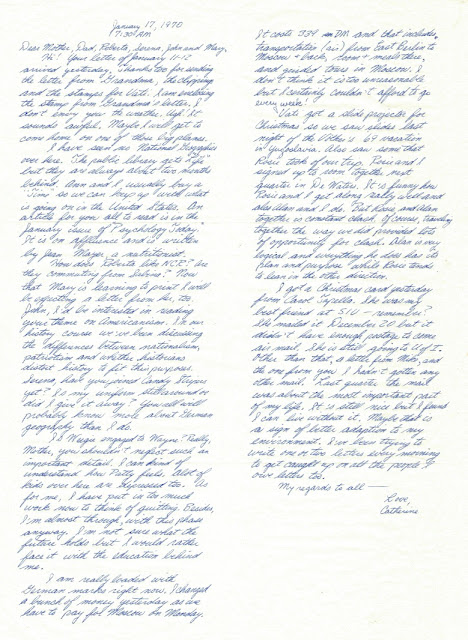 January 17, 1970
7:30 AM
Dear Mother, Dad, Roberta, Serena, John and Mary,
Hi! Your letter of January 11-12
arrived yesterday. Thanks too for sending
the letter from Grandma, the clipping
and the stamps for Vati. I am enclosing
the stamp from Grandma's letter. I
don't envy you the weather. Ugh! It
sounds awful. Maybe I will get to
come home on one of those big planes.
I have seen no National Geographics
over here. The public library gets "Life"
but they are always about two months
behind. Ann and I usually buy a
"Time" so we can keep up with what
is going on in the United States. An
article for you all to read is in the
January issue of "Psychology Today".
It is on affluence and is written
by Jean Mayer, a nutritionist.
How does Roberta like NIC? Are
they commuting from
that Mary is learning to print I will
be expecting a letter from her, too.
John, I'd be interested in reading
your theme on Americanism. In our
history course we've been discussing
the differences between nationalism,
patriotism and whether historians
distort history to fit this purpose.
Serena, have you joined Candy Stripers
yet? Is my uniform still around or
did I give it away? You all will
probably know more about German
geography than I do.
Is Negia engaged to Wayne? Really,
Mother, you shouldn't neglect such an
important detail. I can kind of
understand how Patty feels. A lot of
kids over here are depressed too. As
for me, I have put in too much
work now to think of quitting. Besides,
I'm almost through, with this phase
anyway. I'm not sure what the
future holds but I would rather
face it with the education behind
me.
I am really loaded with
German marks right now. I changed
a bunch of money yesterday as we
have to pay for Moscow on Monday.
It costs 394 in DM and that includes
transportation (air) from East Berlin to
Moscow & back, room & meals there,
and guided tours in Moscow. I
don't think it is too unreasonable
but I certainly couldn't afford to go
every week!
Vati got a slide projector for
Christmas so we saw slides last
night of the Vothers '69 vacation
in Yugoslavia. Also saw some that
Rosie took of our trip. Rosie and I
signed up to room together next
quarter in Dr. Waters. It is funny how
Rosie and I get along really well and
also Alan and I do. But Rosie and Alan
together is constant clash. Of course, traveling
together the way we did provided lots
of opportunity for clash. Alan is very
logical and everything he does has its
plan and purpose while Rosie tends
to lean in the other direction.
I got a Christmas card yesterday
from Carol She was my
best friend at SIU - remember?
She mailed it December 20 but it
didn't have enough postage to come
air mail. She is still going to
Other than that, a letter from and
the one from you I hadn't gotten any
other mail. Last quarter the mail
was about the most important part
of my life. It is still nice but I found
I can live without it. Maybe that is
a sign of better adaption to my
environment. I've been trying to
write one or two letters every morning
to get caught up on all the people I
owe letters too.
My regards to all —
Love,
Catherine